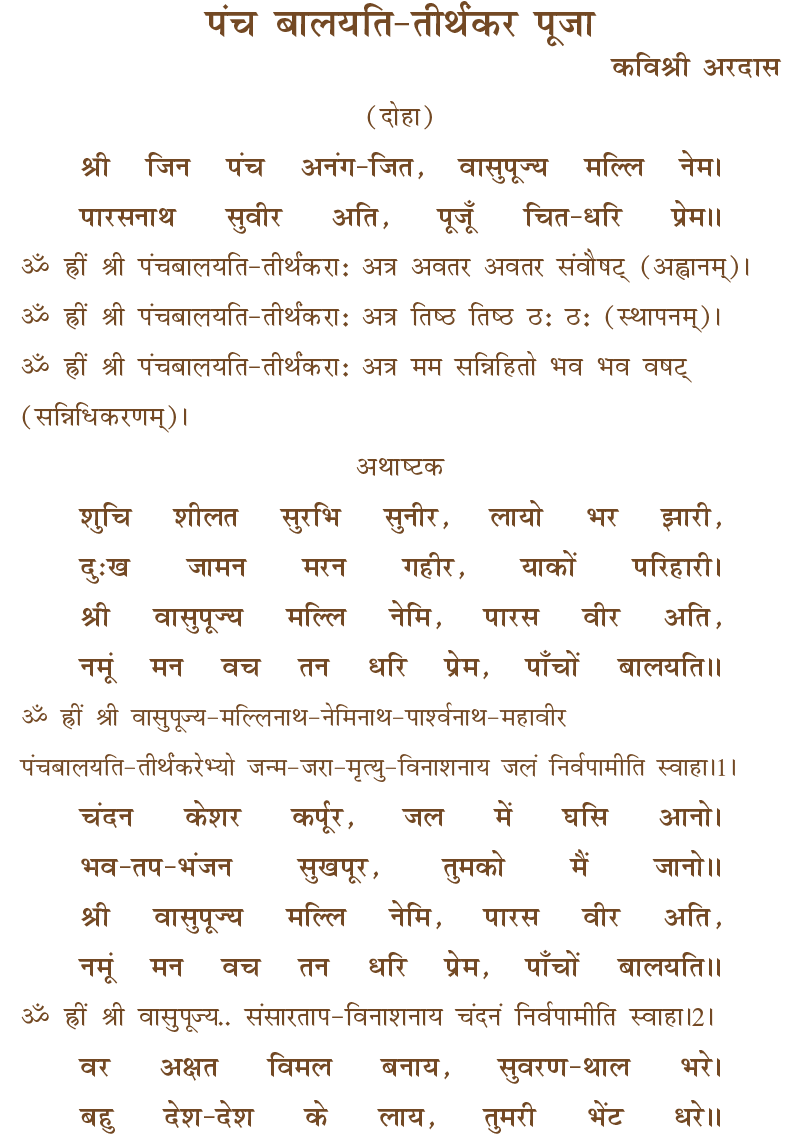 पंच बालयति-तीर्थंकर पूजा
कविश्री अरदास
(दोहा)
श्री जिन पंच अनंग-जित, वासुपूज्य मल्लि नेम।
पारसनाथ सुवीर अति, पूजूँ चित-धरि प्रेम॥
ॐ ह्रीं श्री पंचबालयति-तीर्थंकरा: अत्र अवतर अवतर संवौषट् (अह्वानम्)।
ॐ ह्रीं श्री पंचबालयति-तीर्थंकरा: अत्र तिष्ठ तिष्ठ ठ: ठ: (स्थापनम्)।
ॐ ह्रीं श्री पंचबालयति-तीर्थंकरा: अत्र मम सन्निहितो भव भव वषट्
(सन्निधिकरणम्)।
अथाष्टक
शुचि शीलत सुरभि सुनीर, लायो भर झारी,
दु:ख जामन मरन गहीर, याकों परिहारी।
श्री वासुपूज्य मल्लि नेमि, पारस वीर अति,
नमूं मन वच तन धरि प्रेम, पाँचों बालयति॥
ॐ ह्रीं श्री वासुपूज्य-मल्लिनाथ-नेमिनाथ-पार्श्वनाथ-महावीर
पंचबालयति-तीर्थंकरेभ्यो जन्म-जरा-मृत्यु-विनाशनाय जलं निर्वपामीति स्वाहा।1।
चंदन केशर कर्पूर, जल में घसि आनो।
भव-तप-भंजन सुखपूर, तुमको मैं जानो॥
श्री वासुपूज्य मल्लि नेमि, पारस वीर अति,
नमूं मन वच तन धरि प्रेम, पाँचों बालयति॥
ॐ ह्रीं श्री वासुपूज्य.. संसारताप-विनाशनाय चंदनं निर्वपामीति स्वाहा।2।
वर अक्षत विमल बनाय, सुवरण-थाल भरे।
बहु देश-देश के लाय, तुमरी भेंट धरे॥